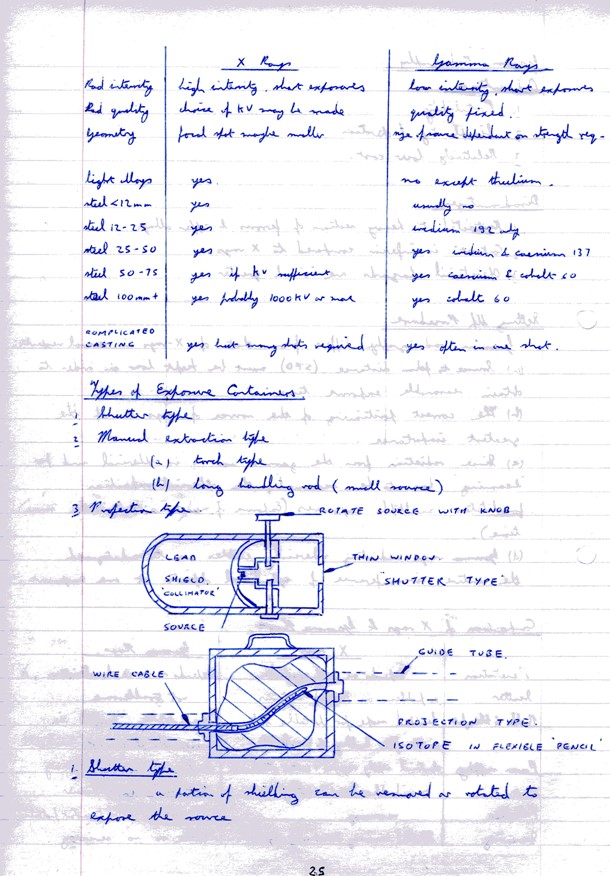 X Rays Gamma Rays
Rad intensity high intensity, short exposures low intensity, short exposures
Rad quality choice of KV may be made quality fixed.
Geometry focal spot maybe smaller size of source dependant on strength req-
light alloys yes. no except thulium.
steel <12mm yes usually no
steel 12-25 yes iridium 192 only
steel 25-50 yes yes iridium & caesium 137
steel 50-75 yes if KV sufficient yes caesium & cobalt 60
steel 100mm+ yes probably 1000KV or more yes cobalt 60
COMPLICATED
CASTING yes but many shots required yes often in one shot.
Types of Exposure Containers.
1 Shutter type
2 Manual extraction type
(a) torch type
(b) long handling rod (small source)
3 Projection type.
ROTATE SOURCE WITH KNOB
LEAD
SHIELD
'COLLIMATOR'
THIN WINDOW.
"SHUTTER TYPE"
SOURCE
GUIDE TUBE.
WIRE CABLE
PROJECTION TYPE.
ISOTOPE IN FLEXIBLE 'PENCIL'
1. Shutter type
a portion of shielding can be removed or rotated to
expose the source
25